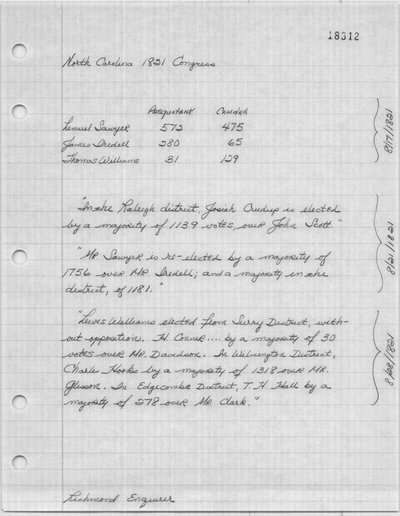 18312
North Carolina 1821 Congress
Pasquotank Camden
Lemuel Sawyer 572 475
James Iredell 280 65
Thomas Williams 31 129
8/17/1821
"In the Raleigh district, Josiah Crudup is elected
by a majority of 1139 votes, over John Scott."
"Mr Sawyer is re-elected by a majority of
1756 over Mr Iredell; and a majority in the
district, of 1181."
8/21/1821
"Lewis Williams elected from Surry District, with-
out opposition. H Conner .... by a majority of 50
votes over Mr. Davidson. In Wilmington District,
Charles Hooks by a majority of 1318 over Mr.
Gleason. In Edgecombe District, T. H Hall by a
majority of 278 over Mr Clark."
/1821
Richmond Enquirer